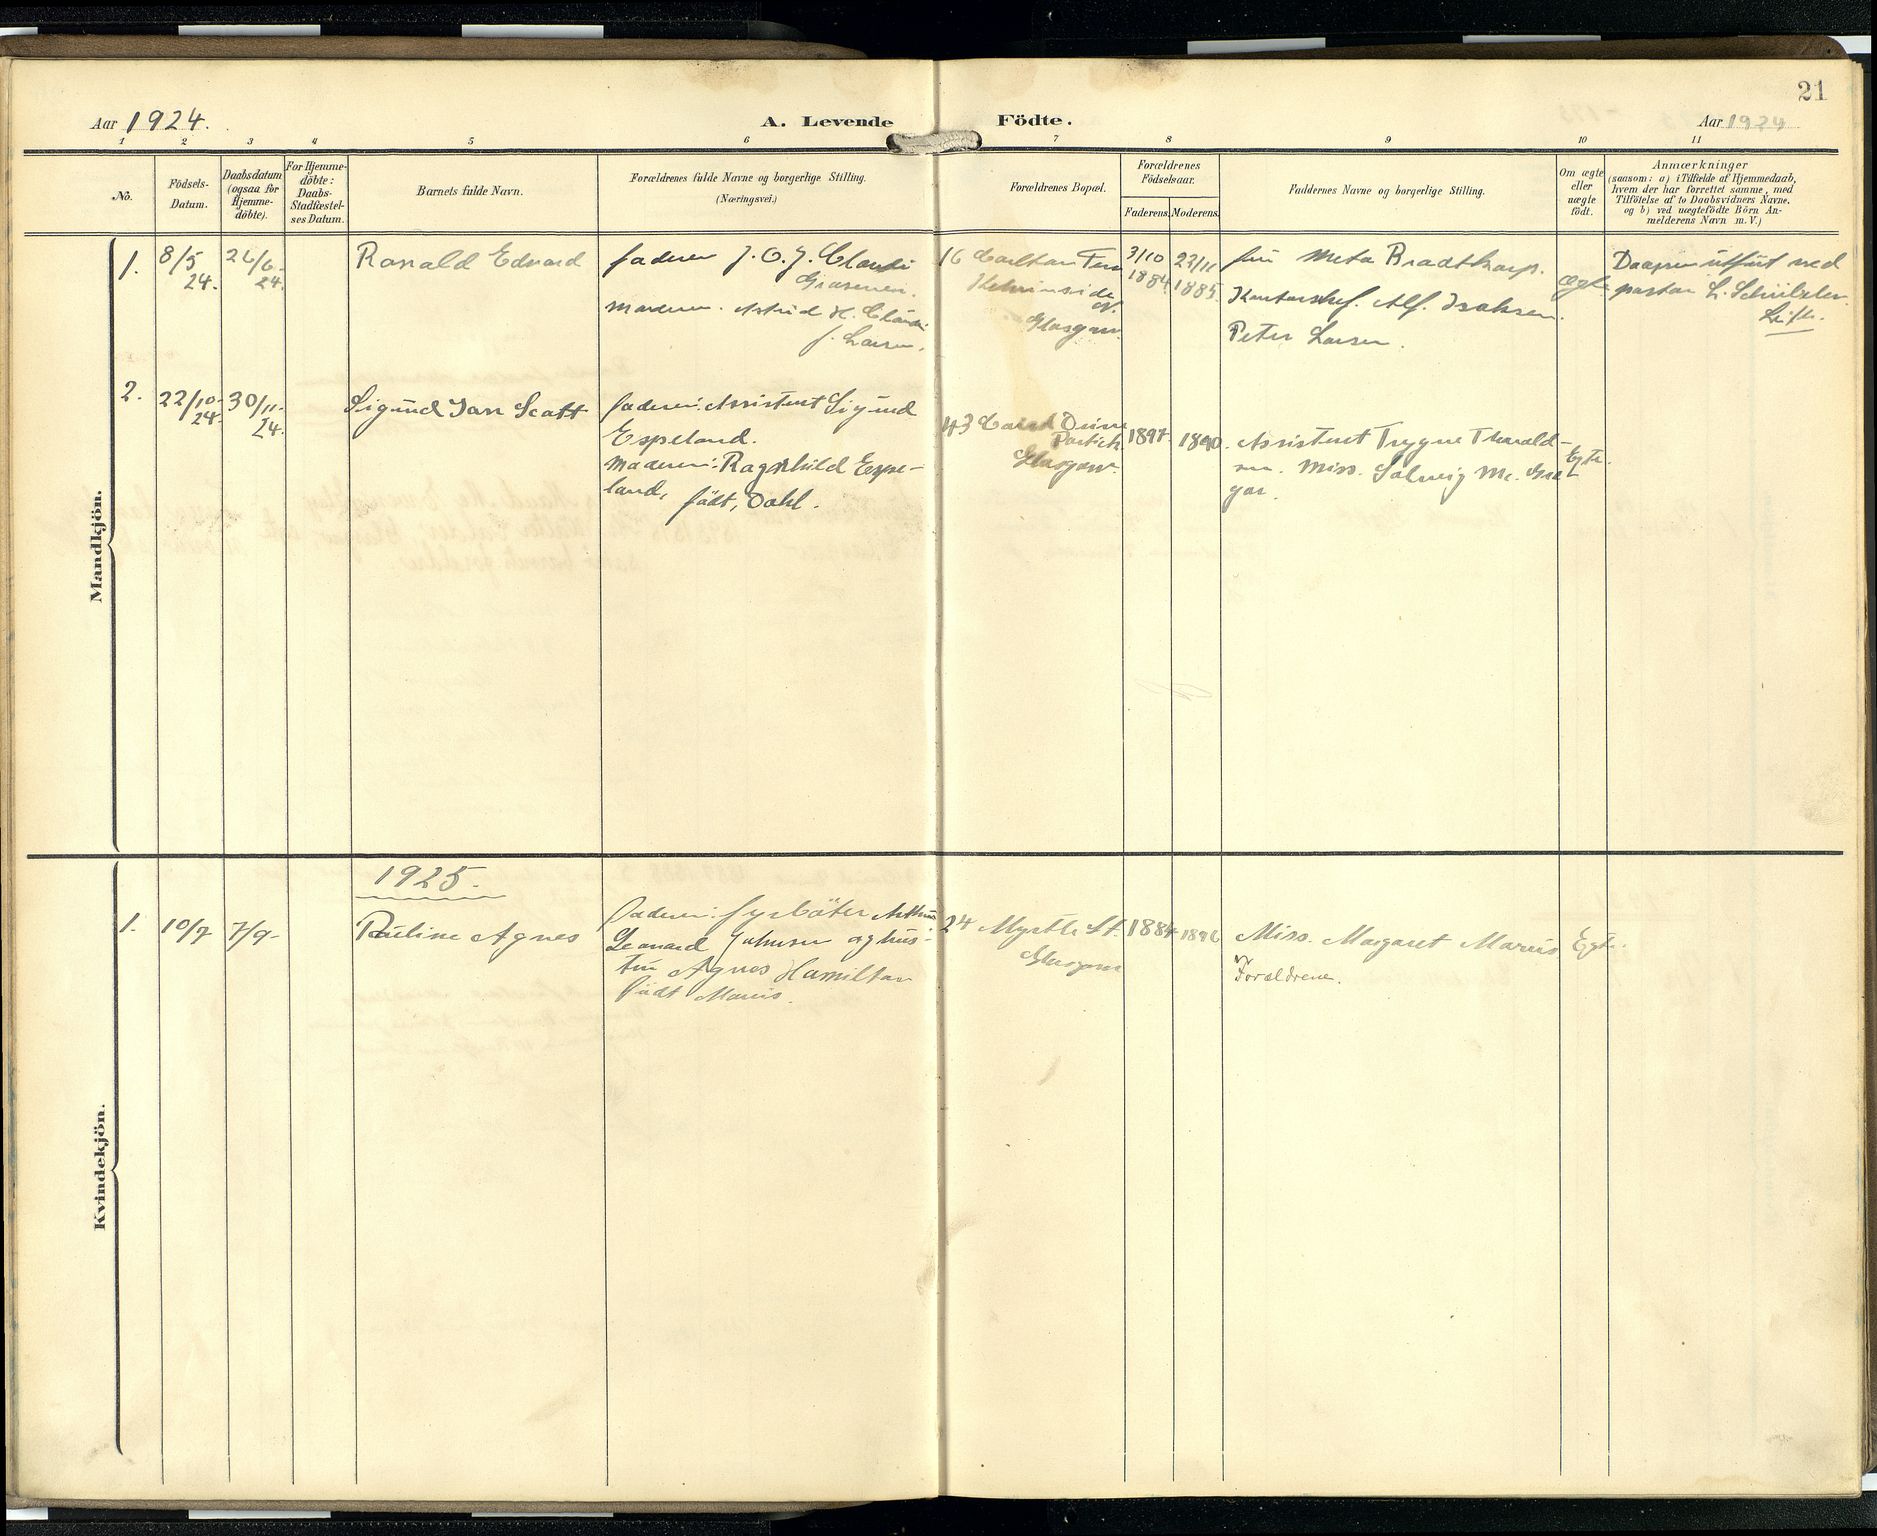 21
Aar 1924.
A. Levende Födte.
Aar 1924
1 2 3 4 5 6 7 8 9 10 11
No.
Födsels-
Datum.
Daabsdatum
(ogsaa for
Hjemme-
döbte).
For Hjemme-
döbte:
Daabs-
Stadfæstel-
ses Datum.
Barnets fulde Navn.
Forældrenes fulde Navne og borgerlige Stilling.
(Næringsvei.)
Forældrenes Bopæl.
Forældrenes
Födselsaar.
Faderens. Moderens.
Faddernes Navne og borgerlige Stilling.
Om ægte
eller
uægte
født.
Anmærkninger
(saasom: a) i Tilfælde af Hjemmedaab,
hvem der har forrettet samme, med
Tilføielse af to Daabsvidners Navne.
og b) ved uægtefödte Börn An-
melderens Navn m. V.)
Mandkjön.
1.
8/5
24.
26/6.
24.
Ronald Edvard
faderen J. O. J. Claudi
Moderen. Astrid H. Claudi
f. Larsen.
16 Carlton Terr
Kelvinside
Glasgow.
3/10
1884.
23/11
1885.
fru Meta Bradtkorp.
Kontorchef. Alf. Isaksen.
Peter Larsen.
ægte
Daapen utført ved
pastor L. Schübeler.
Leith.
2.
22/10.
24.
30/11.
24.
Sigund Ian Scott
faderen: Assistent Sigund
Espeland.
Moderen: Ragnhild Espe-
land, født, Dahl.
43 Caird Drive
Partick
Glasgow.
1897.
1890.
Assistent Trygve Thorald-
sen. Miss. Solveig Mc. Gre
gor.
Egte.
Kvindekjön.
1925.
1.
10/7
7/9-
Pauline Agnes
faderen: fyrbøter Arthur
Leonard Johnsen og hus-
tru Agnes Hamilton
født Marris.
24 Myrtle St.
Glasgow
1884
1896
Miss. Margaret Marris
Forældrene.
Egte.